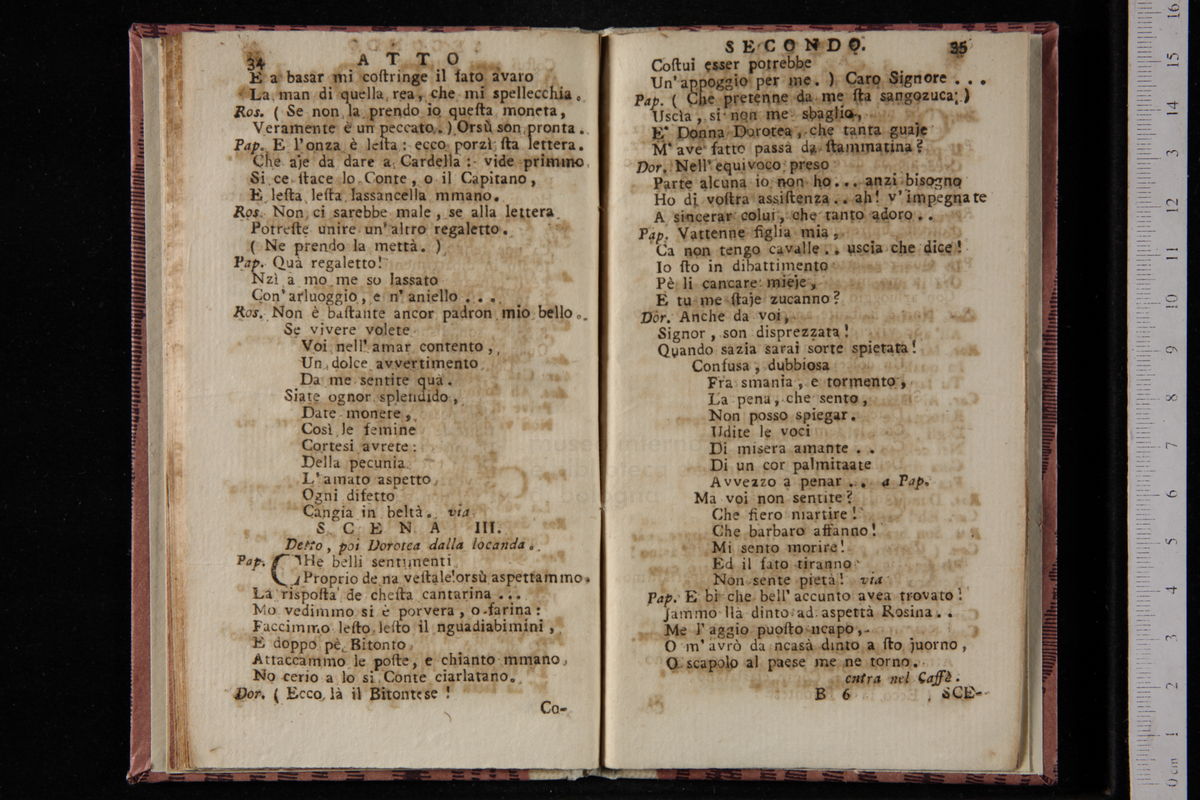 34 ATTO
E a basar mi coſtringe il fato avaro
La man di quella rea, che mi spellecchia.
Ros. ( Se non la prendo io queſta moneta,
Veramente è un peccato. ) Orsù son pronta.
Pap. E l'onza è leſta: ecco porzì ſta lettera.
Che aje da dare a Cardella: vide primmo
Si ce ſtace lo Conte, o il Capitano,
E leſta leſta lassancella mmano.
Ros. Non ci sarebbe male, se alla lettera
Poteſte unire un'altro regaletto.
( Ne prendo la mettà. )
Pap. Quà regaletto!
Nzì a mo me so lassato
Con'arluoggio, e n'aniello ....
Ros. Non è baſtante ancor padron mio bello.
Se vivere volete
Voi nell'amar contento,
Un dolce avvertimento
Da me sentite qua.
Siate ognor splendido,
Date monete,
Così le femine
Cortesi avrete:
Della pecunia
L'amato aspetto
Ogni difetto
Cangia in beltà. via
SCENA III.
Detto, poi Dorotea dalla locanda.
Pap. CHe belli sentimenti
Proprio de na veſtale! orsù aspettammo
La risposta de cheſta cantarina ...
Mo vedimmo si è porvera, o farina:
Faccimmo leſto leſto il nguadiabimini,
E doppo pè Bitonto
Attaccammo le poſte, e chianto mmano
No cerio a lo si Conte ciarlatano.
Dor. ( Ecco là il Bitontese !
Co-
SECONDO. 35
Coſtui esser potrebbe
Un'appoggio per me. ) Caro Signore ...
Pap. ( Che pretenne da me ſta sangozuca; )
Uscìa, si non me sbaglio,
E' Donna Dorotea, che tanta guaje
M'ave fatto passà da ſtammatina?
Dor. Nell'equivoco preso
Parte alcuna io non ho... anzi bisogno
Ho di voſtra assiſtenza.. ah! v'impegnate
A sincerar colui, che tanto adoro..
Pap. Vattenne figlia mia,
Ca non tengo cavalle.. uscia che dice!
Io ſto in dibattimento
Pè li cancare mieje,
E tu me ſtaje zucanno?
Dor. Anche da voi,
Signor, son disprezzata!
Quando sazia sarai sorte spietata!
Confusa, dubbiosa
Fra smania, e tormento,
La pena, che sento,
Non posso spiegar.
Udite le voci
Di misera amante ..
Di un cor palmitaate
Avvezzo a penar ... a Pap.
Ma voi non sentite?
Che fiero martire!
Che barbaro affanno!
Mi sento morire!
Ed il fato tiranno
Non sente pietà! via
Pap. E bì che bell'accunto avea trovato!
Jammo llà dinto ad aspettà Rosina..
Me l'aggio puoſto ncapo,
O m'avrò da ncasà dinto a ſto juorno,
O scapolo al paese me ne torno.
entra nel Caffè.
B 6 SCE-